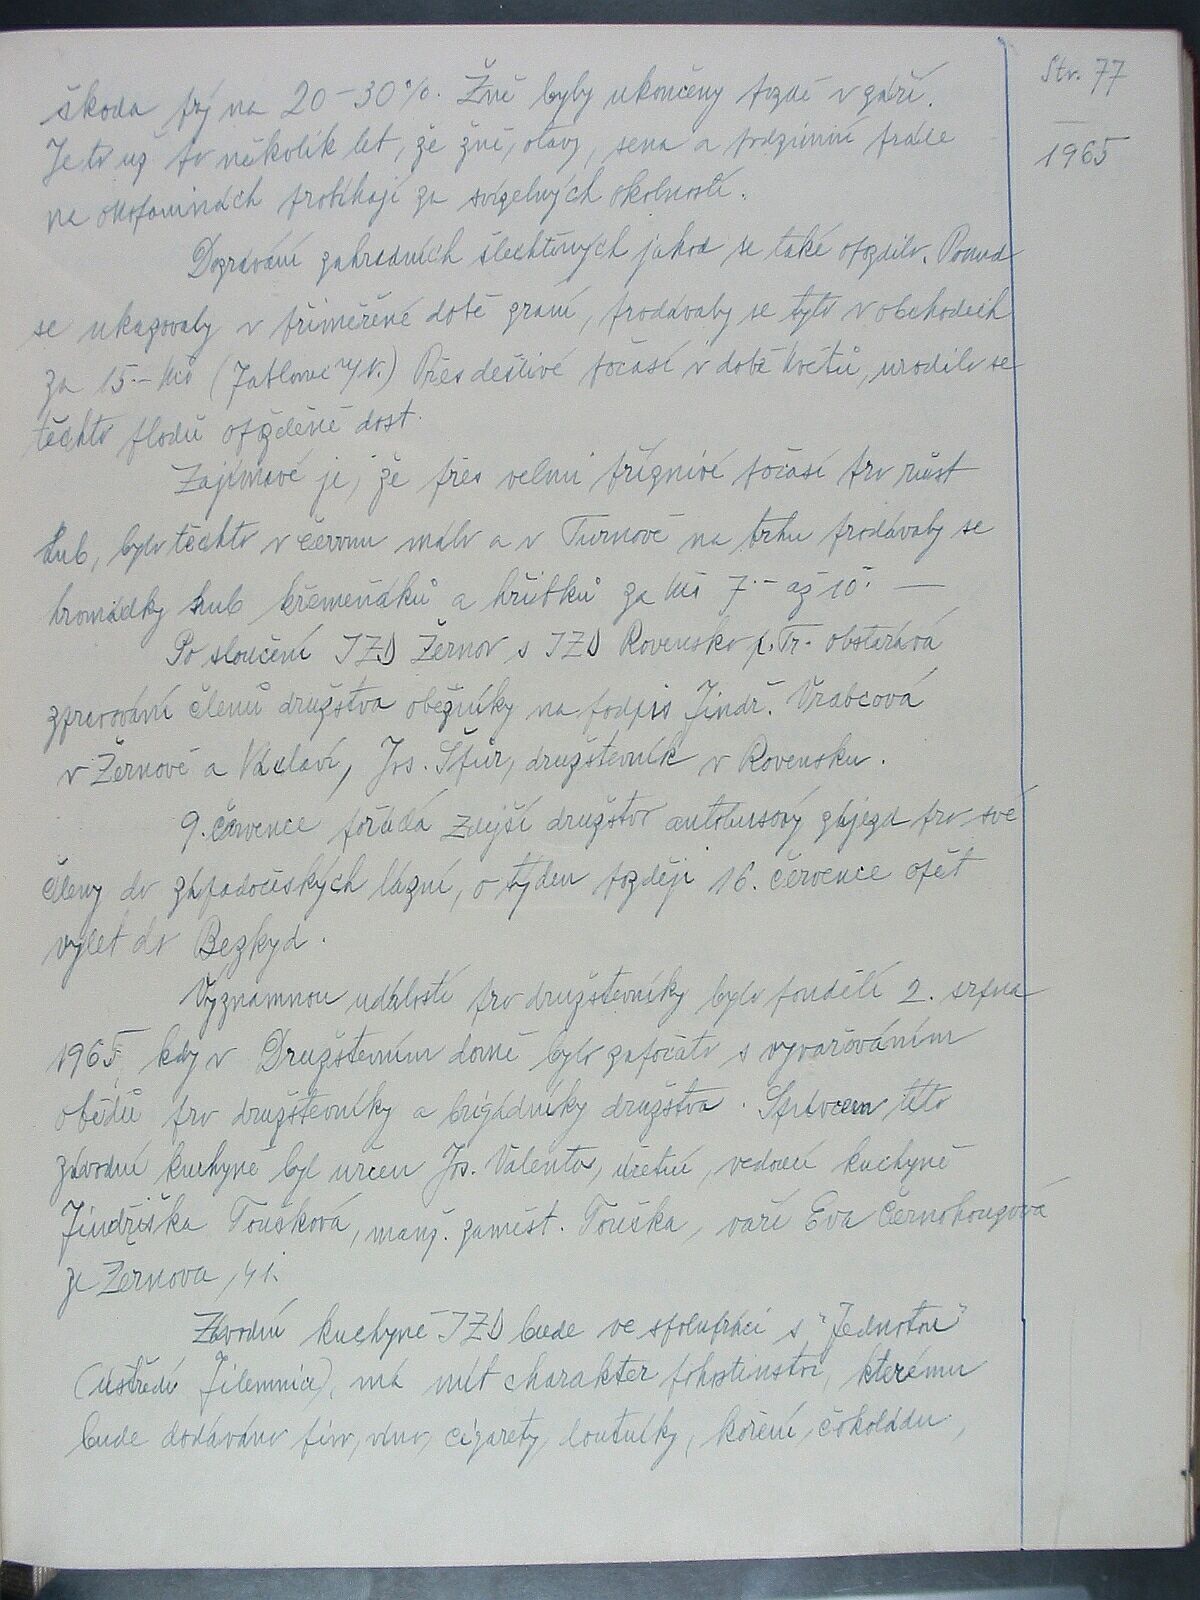 Str. 77
1965
škoda prý na 20–30%. Žně byly ukončeny pozdě v září.
Je to už po několik let, že žně, otavy, sena a podzimní práce
na okopaninách probíhají za svízelných okolností.
Dozrávání zahradních šlechtěných jahod se také opozdilo. Pokud
se ukazovaly v přiměřené době zraní, prodávaly se tyto v obchodech
za 15.– Kčs (Jablonec n/N.) Přes deštivé počasí v době květů, urodilo se
těchto plodů opožděně dost.
Zajímavé je, že přes velmi příznivé počasí pro růst
hub, bylo těchto v červnu málo a v Turnově na trhu prodávaly se
hromádky hub křemenáků a hříbků za Kčs 7.– až 10.– —
Po sloučení JZD Žernov s JZD Rovensko p. Tr. obstarává
zpravování členů družstva oběžníky na podpis Jindř. Vrabcová
v Žernově a Václaví, Jos. Šfúr, družstevník v Rovensku.
9. července pořádá zdejší družstvo autobusový zájezd pro své
členy do západočeských lázní, o týden později 16. července opět
výlet do Bezkyd.
Významnou událostí pro družstevníky bylo pondělí 2. srpna
1965, kdy v Družstevním domě bylo započato s vyvařováním
obědů pro družstevníky a brigádníky družstva. Správcem této
závodní kuchyně byl určen Jos. Valenta, účetní, vedoucí kuchyně
Jindřiška Toušková, manž. zaměst. Touška, vaří Eva Černohouzová
ze Žernova, 41.
Závodní kuchyně JZD bude ve spolupráci s "Jednotou"
(ústředí Jilemnice), má mít charakter pohostinství, kterému
bude dodáváno pivo, víno, cigarety, doutníky, koření, čokoládu,